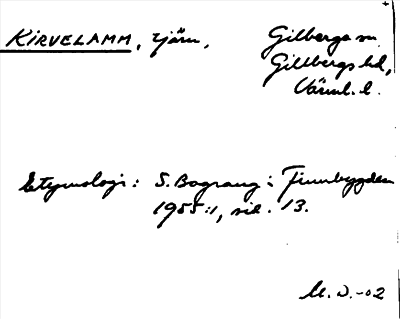 KIRVELAMM, tjärn, Gillberga sn
Gillbergs hd,
Värml. l.
Etymologi: S. Bograng i Finnbygden
1955:1, sid. 13.
M. W.-02